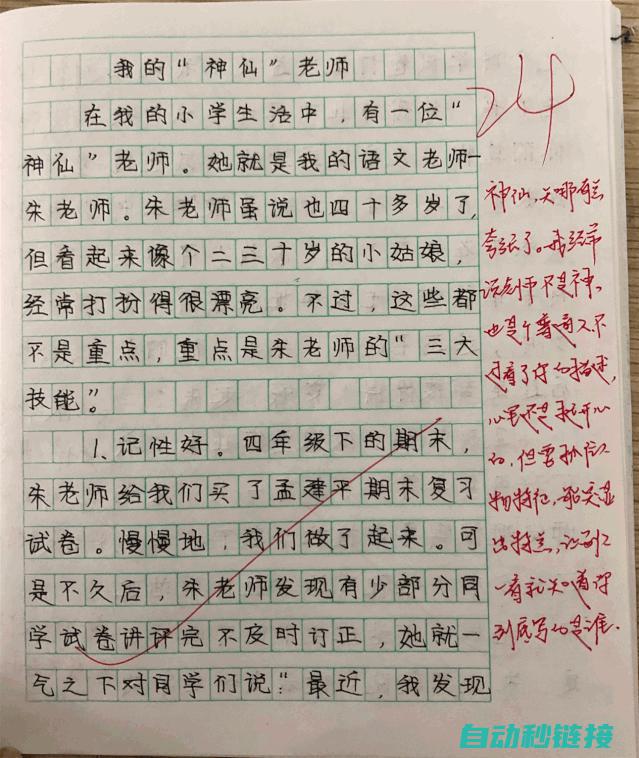 我的“神仙”老师
24
在我的小学生活中，有一位“
神仙”老师。她就是我的语文老师—
朱老师。朱老师虽说也四十多岁了，
但看起来像个二三十岁的小姑娘，
经常打扮得很漂亮。不过，这些都
不是重点，重点是朱老师的“三大
技能”。
1、记性好。四年级下的期末，
朱老师给我们买了孟建平期末复习
试卷。慢慢地，我们做了起来。可
是不久后，朱老师发现有少部分同
学试卷讲评完不及时订正，她就一
气之下对同学们说：“最近，我发现
神仙，
夸张了。我经常
说老师不是神，
也是个普通人。不
过看了你的描述，
心里还是挺开心
的，但要抓住人
物特征，
出特点，让别人
一看就知道你
到底写的是谁.
自动秒链接